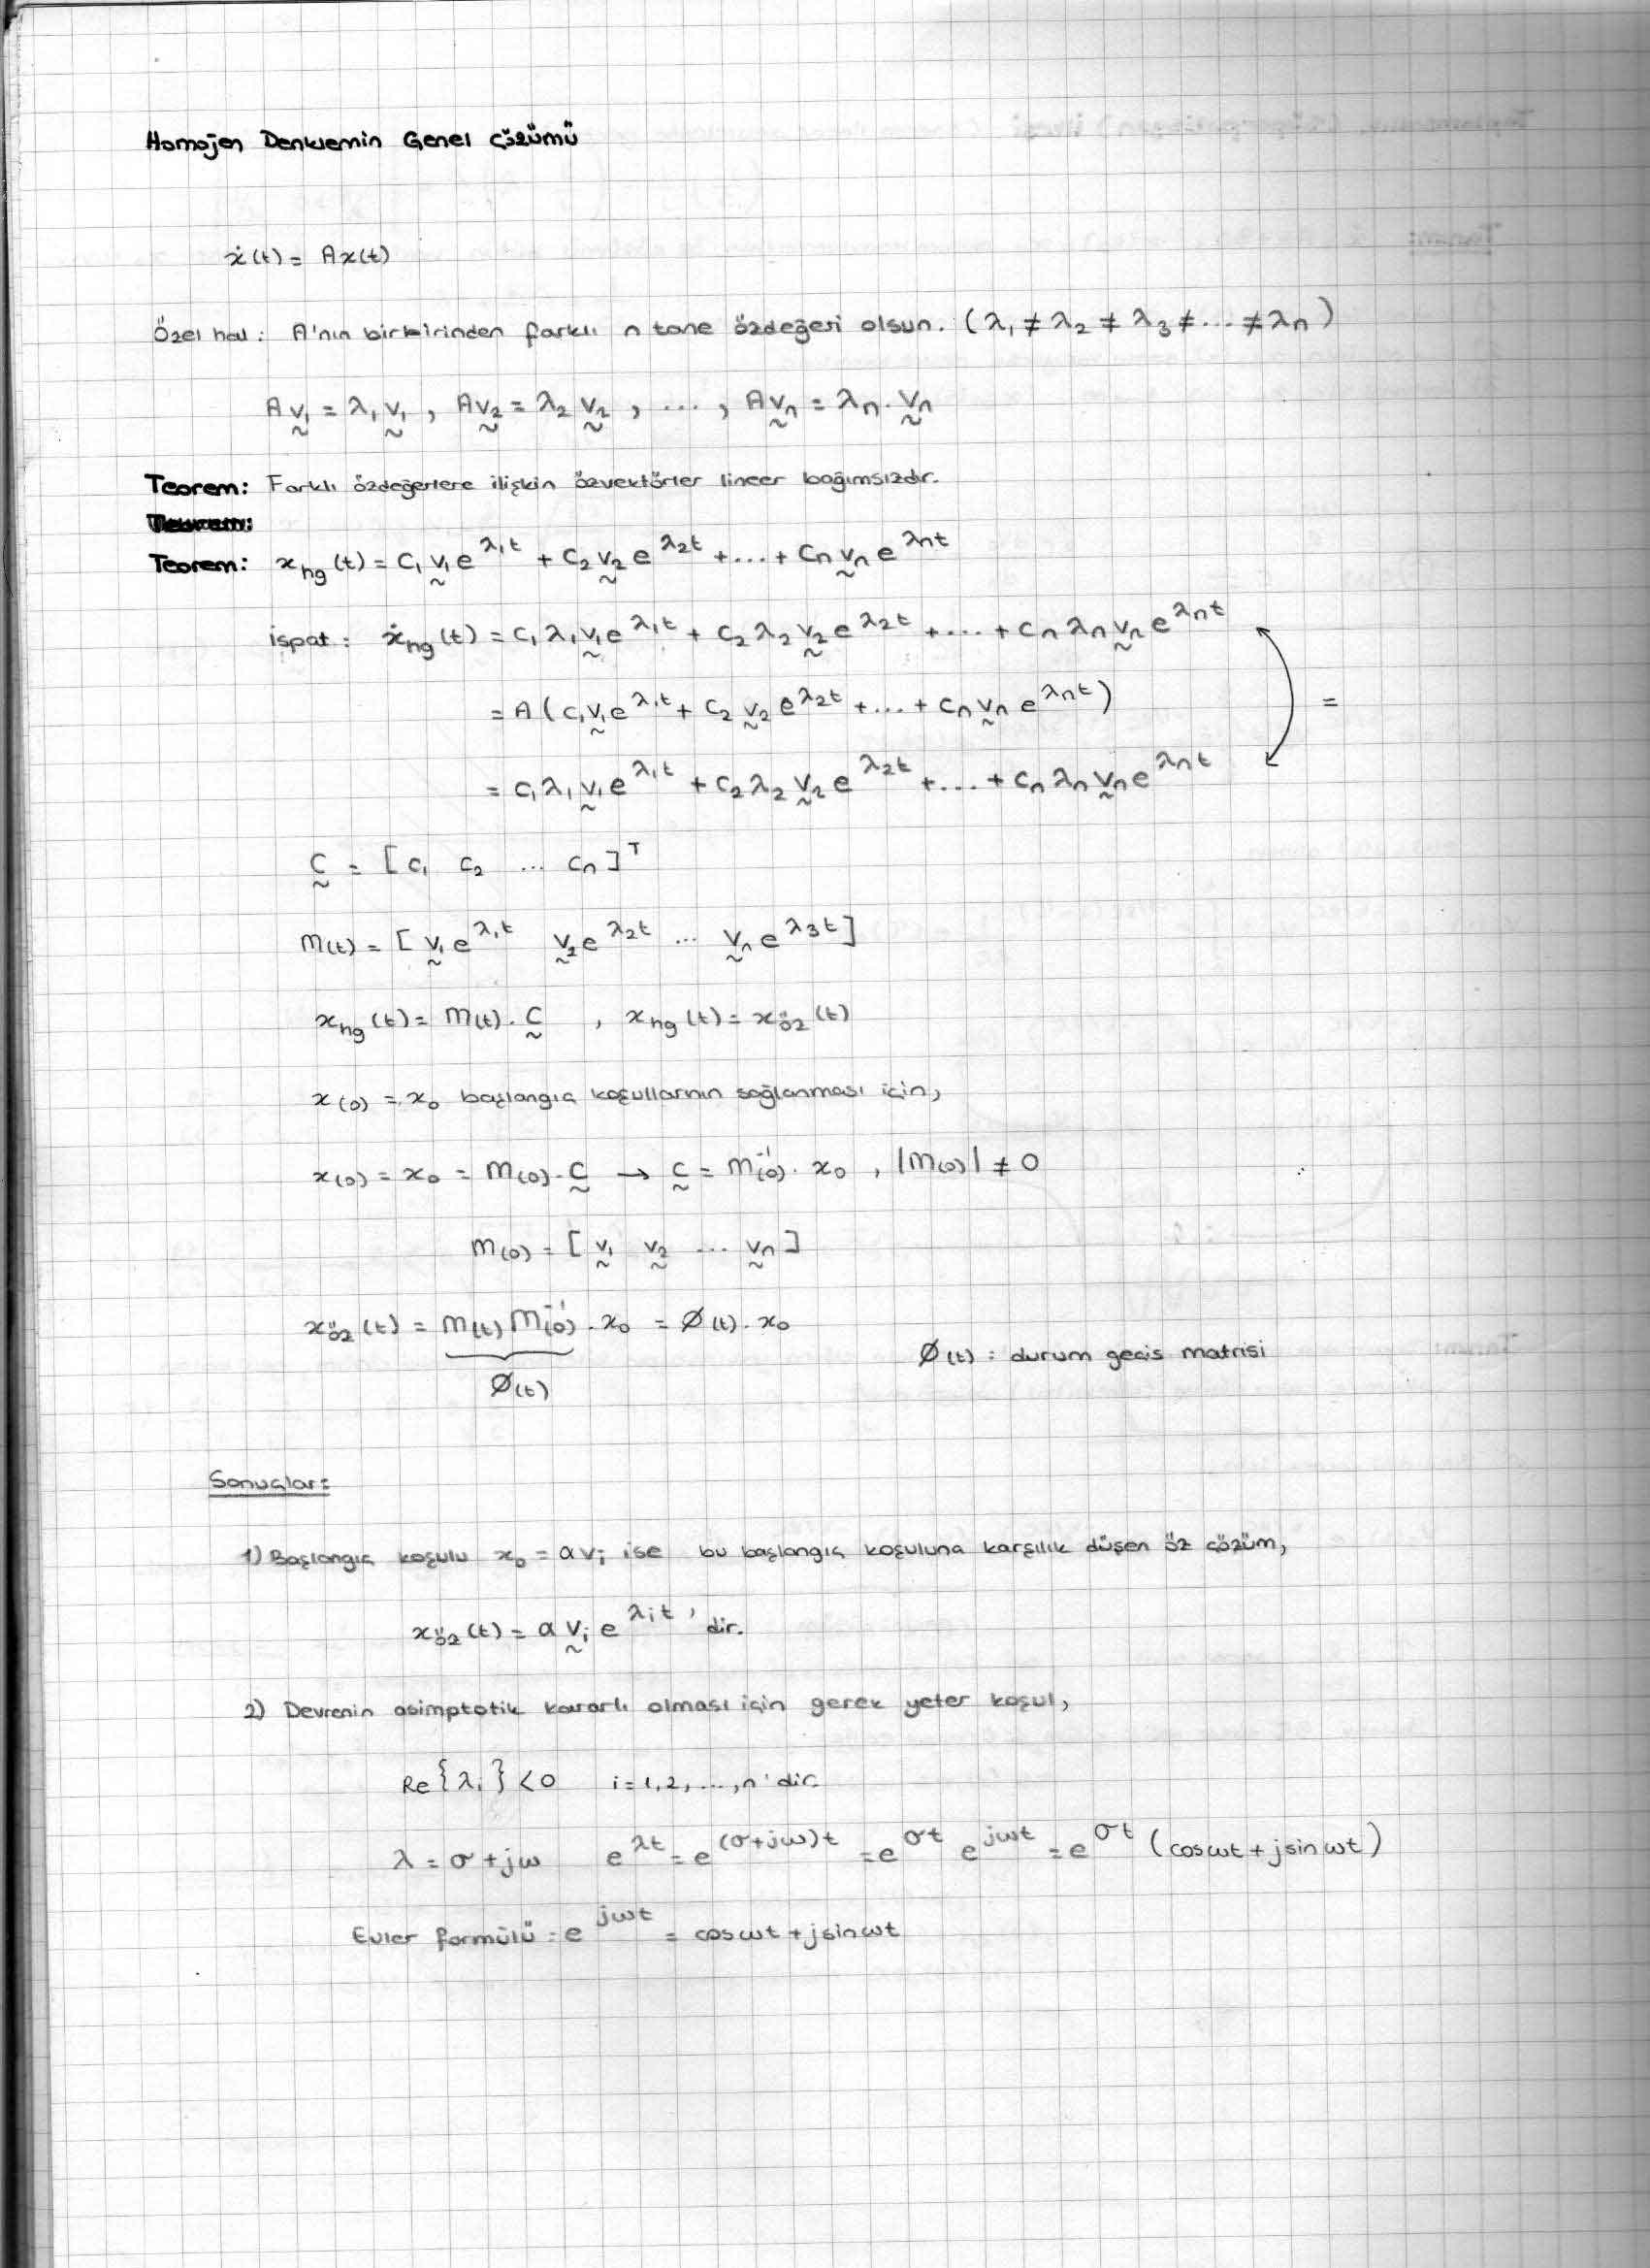 Homojen Denklemin Genel Çözümü
ẋ(t) = Ax(t)
Özel hal: A'nın birbirinden farklı n tane özdeğeri olsun. (λ₁ ≠ λ₂ ≠ λ₃ ≠ ... ≠ λn)
Av₁ = λ₁v₁, Av₂ = λ₂v₂, ..., Avn = λn.vn
Teorem: Farklı özdeğerlere ilişkin özvektörler lineer bağımsızdır.
Teorem:
Teorem: x_hg(t) = c₁v₁e^λ₁t + c₂v₂e^λ₂t + ... + cnvne^λnt
ispat: ẋ_hg(t) = c₁λ₁v₁e^λ₁t + c₂λ₂v₂e^λ₂t + .... + cnλnvne^λnt
= A(c₁v₁e^λ₁t + c₂v₂e^λ₂t + ... + cnvne^λnt) =
= c₁λ₁v₁e^λ₁t + c₂λ₂v₂e^λ₂t + .... + cnλnvne^λnt
C = [c₁ c₂ ... cn]^T
M(t) = [v₁e^λ₁t v₂e^λ₂t ... vne^λ₃t]
x_hg(t) = M(t).C , x_hg(t) = x_öz(t)
x(0) = x₀ başlangıç koşullarının sağlanması için,
x(0) = x₀ = M(0).C → C = M⁻¹(0).x₀ , |M(0)| ≠ 0
M(0) = [v₁ v₂ ... vn]
x_öz(t) = M(t)M⁻¹(0).x₀ = Ø(t).x₀
Ø(t)
Ø(t) : durum geçis matrisi
Sonuçlar:
1) Başlangıç koşulu x₀ = αvi ise bu başlangıç koşuluna karşılık düşen öz çözüm,
x_öz(t) = αvie^λit 'dir.
2) Devrenin asimptotik kararlı olması için gerek yeter koşul,
Re{λi} < 0 i = 1,2,...,n 'dir.
λ = σ + jω e^λt = e^(σ+jω)t = e^σt e^jωt = e^σt (cosωt + jsinωt)
Euler formülü : e^jωt = cosωt + jsinωt